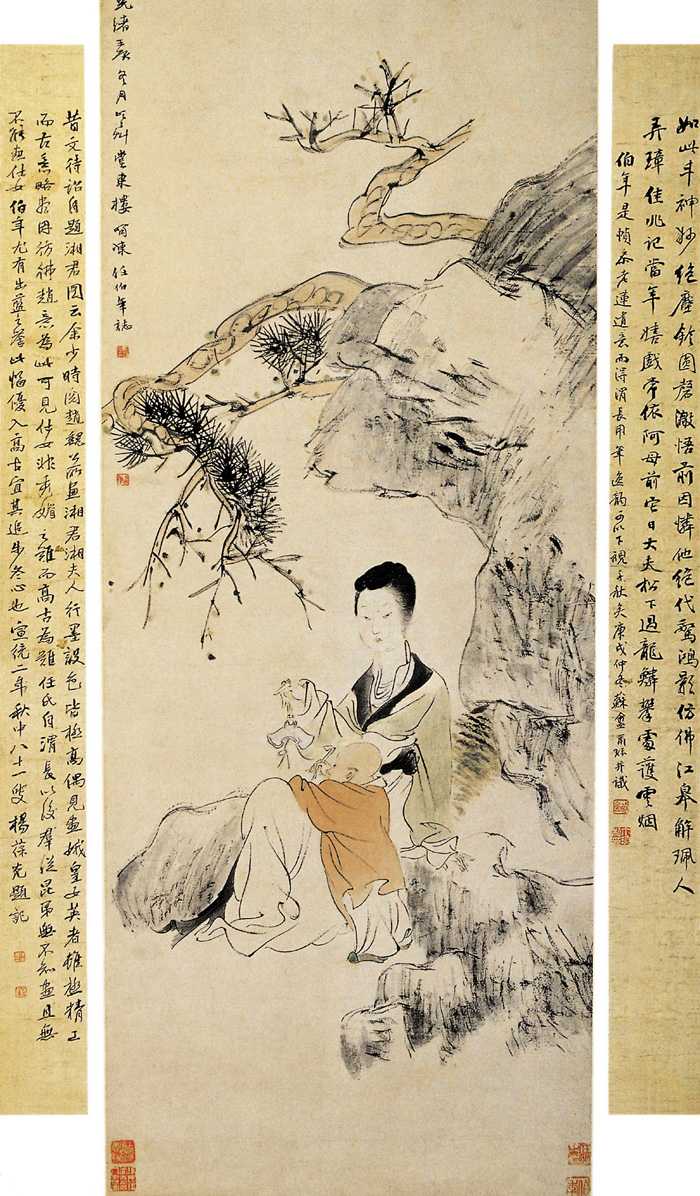 如此丰神妙絕塵圖磬澈悟前因憐他絕代驚鴻影仿佛江皋解珮人
弄璋佳兆記當年嬉戲常依阿母前它日大夫松下過龍鱗攀處護雲烟
伯年是幀本老蓮遺意而得渭長用筆逸韵可以下視千秋矣庚戌仲冬蘇盦并識
光緒冬月堂東樓呵凍任伯年誌
昔文待詔自題湘君圖云余少時閱趙魏公所畫湘君湘夫人行墨設色皆極高偶見畫娥皇女英者雖極精工
而古意略盡因彷彿趙意為此可見仕女非秀媚之難而高古為難任氏自渭長以後群從昆弟無不知畫且無
不能畫仕女伯年尤有出藍之譽此幅優入高古宜其進步冬心也宣統二年秋中八十一叟楊葆光題記